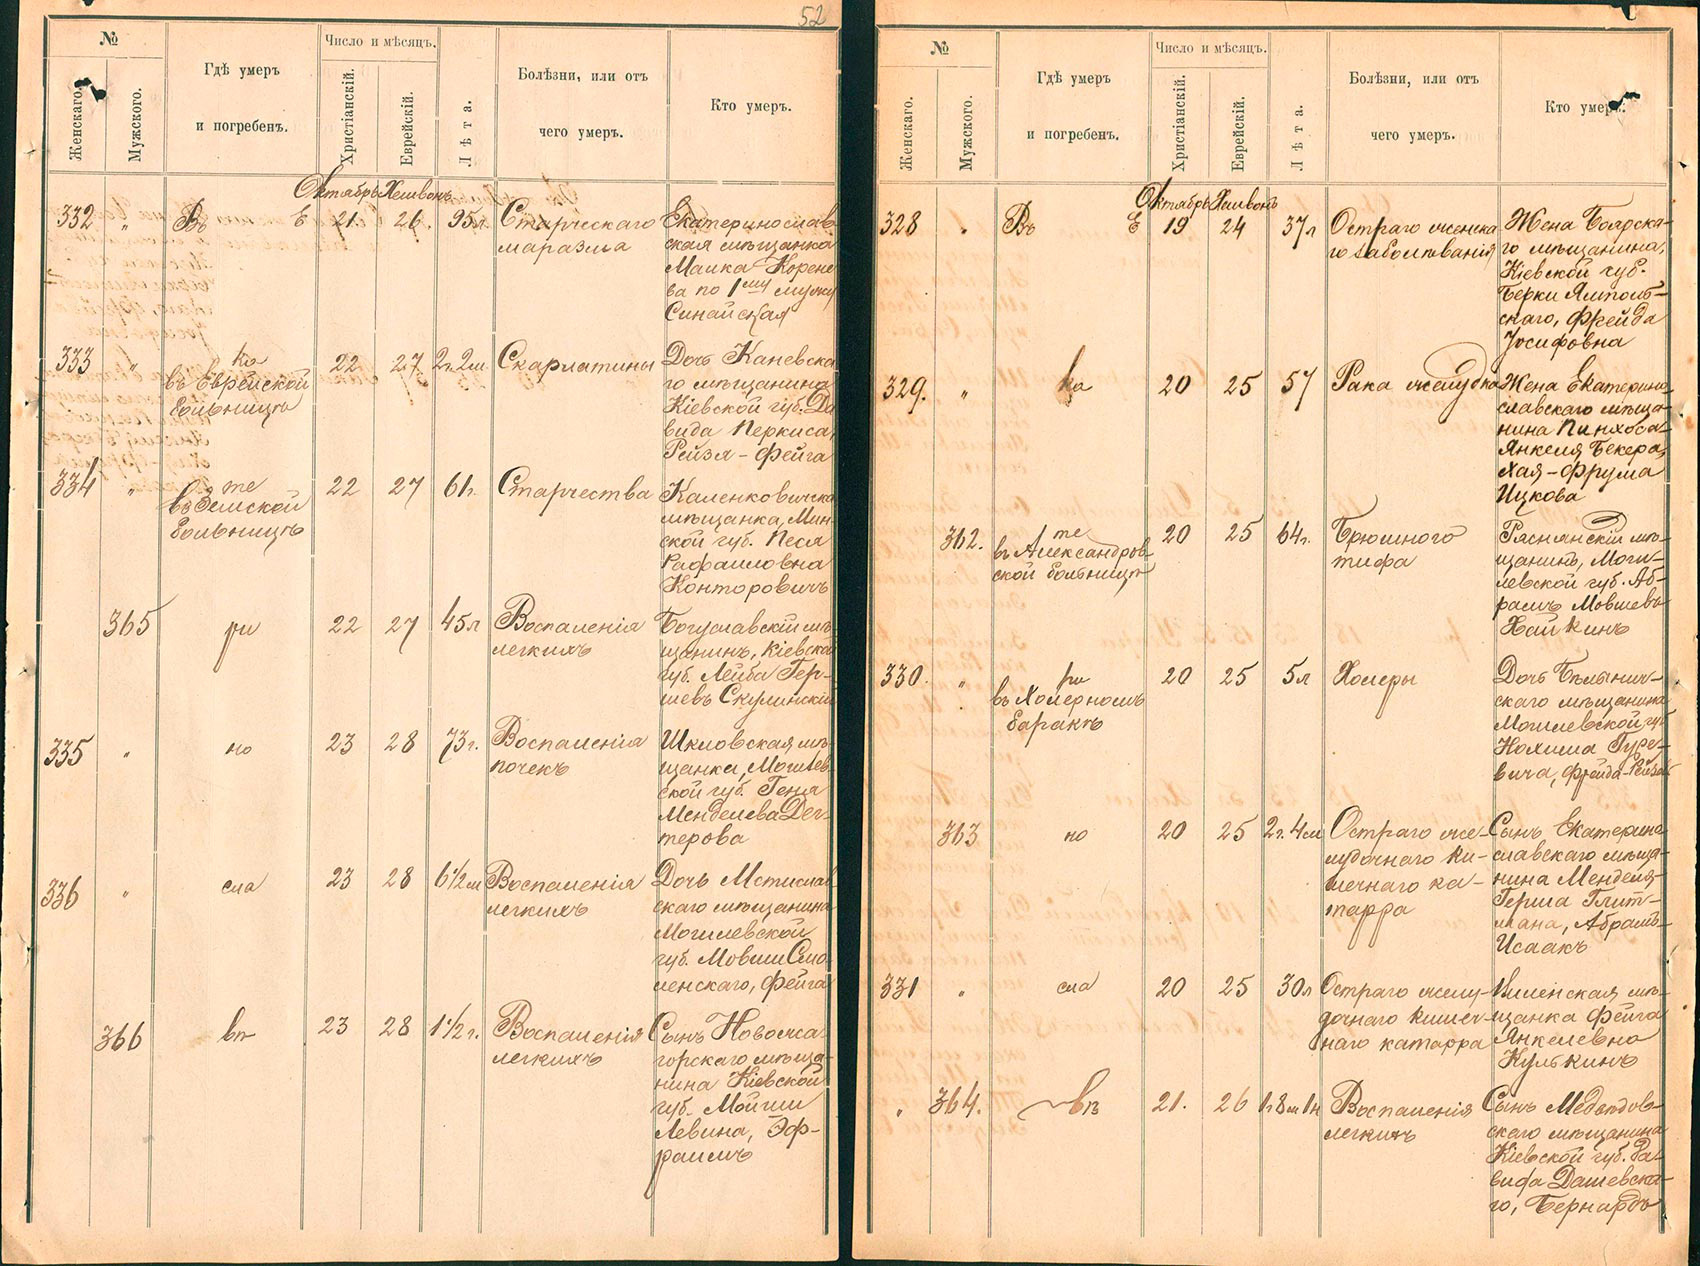 52
№
Женскаго.
Мужского.
Гдѣ умеръ
и погребенъ.
Число и мѣсяцъ.
Христіанскій.
Еврейскій.
Лѣта.
Болѣзни, или отъ
чего умеръ.
Кто умеръ.
Октябрь Хешвонъ
332 " Въ Е 21. 26. 95л. Старческаго
маразма
Екатеринослав-
ская мѣщанка
Малка Корене
ва по 1му мужу
Синайская
333 " ка 22 27. 2г. 2м. Скарлатины
въ Еврейской
больницѣ
Дочь Каневска
го мѣщанина
Кіевской губ. Да
вида Перкиса,
Рейзя-Фейга
334 " те 22 27 61г. Старчества
въ Земской
больницѣ
Каленковичска
мѣщанка, Мин-
ской губ. Песя
Рафаиловна
Конторовичъ
365 ри 22 27 45л Воспаленія
легкихъ
Богуславскій мѣ-
щанинъ, Кіевско
губ. Лейба Гер-
шевъ Скулинскій
335 " но 23 28 73г. Воспаленія
почекъ
Шкловская мѣ-
щанка, Могилев-
ской губ. Геня
Менделева Дег-
терова
336 " сла 23 28 6 1/2 м Воспаленія
легкихъ
Дочь Мстислав
скаго мѣщанина
Могилевской
губ. Мовши Смо
ленскаго, Фейга
366 вѣ 23 28 1 1/2 г. Воспаленія
легкихъ
Сынъ Новомо
горскаго мѣща-
нина Кіевской
губ. Мойши
Левина, Эф-
раимъ
№
Женскаго.
Мужского.
Гдѣ умеръ
и погребенъ.
Число и мѣсяцъ.
Христіанскій.
Еврейскій.
Лѣта.
Болѣзни, или отъ
чего умеръ.
Кто умеръ.
Октябрь Хешвонъ
328 " Въ Е 19 24 37л Остраго женска
го заболѣванія
Жена Боярска-
го мѣщанина,
Кіевской губ.
Берки Ямполь-
скаго, Фрейда
Іосифовна
329. " ка 20 25 57 Рака желудка
Жена Екатерино
славскаго мѣща-
нина Пинхоса-
Янкеля Бекера,
Хая-Фрума
Ицкова
362. те 20 25 64г. Брюшного
тифа
въ Александров-
ской больницѣ
Ряснянскій мѣ-
щанинъ, Моги-
левской губ. Аб-
рамъ Мовшевъ
Хайкинъ
330. " ри 20 25 5л Холеры
въ Холерномъ
баракѣ
Дочь Бѣлынич-
скаго мѣщанина
Могилевской губ
Нохима Гуре-
вича, Фрейда-Рейза
363 но 20 25 2г. 4м Остраго же-
лудочнаго ки-
шечнаго ка-
тарра
Сынъ Екатерино
славскаго мѣща-
нина Менделя-
Герша Глит-
мана, Абрамъ-
Исаакъ
331 " сла 20 25 30л Остраго желу-
дочнаго кишеч-
наго катарра
Виленская мѣ-
щанка Фейга
Янкелевна
Кулькинъ
" 364. вѣ 21. 26 1г 8м 1н Воспаленія
легкихъ
Сынъ Медвѣдов-
скаго мѣщанина
Кіевской губ. Да-
вида Дашевска-
го, Бернардъ